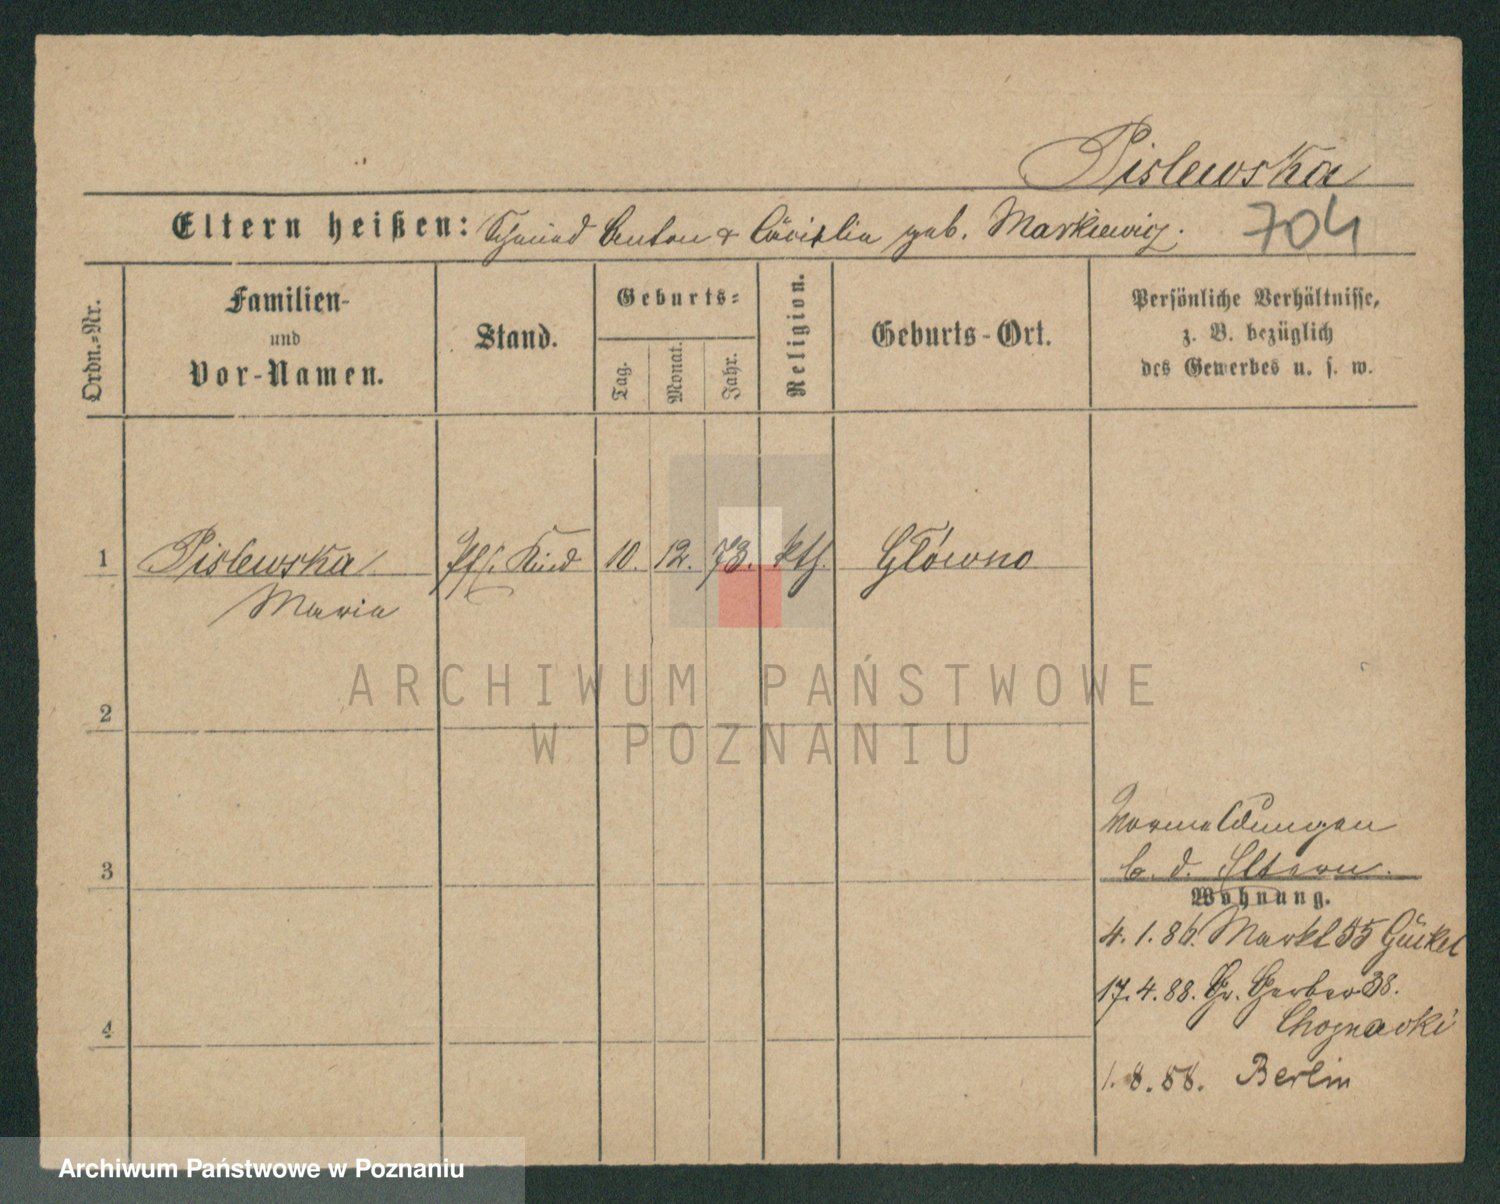 Pislewska
Eltern heißen: Schmied Anton & Cäcilia geb. Markiewicz.
704
Ordn.-Nr.
Familien-
und
Vor-Namen.
Stand.
Geburts-
Tag.
Monat.
Jahr.
Religion.
Geburts-Ort.
Persönliche Verhältnisse,
z. B. bezüglich
des Gewerbes u. s. w.
1 Pislewska Kind 10. 12. 73. kth. Główno
Maria
ARCHIWUM PAŃSTWOWE
W POZNANIU
2
3
4
b. d. Eltern.
Wohnung.
4. 1. 86. Markt 55
17. 4. 88. Gr. Gerber 38.
Berlin
Archiwum Państwowe w Poznaniu